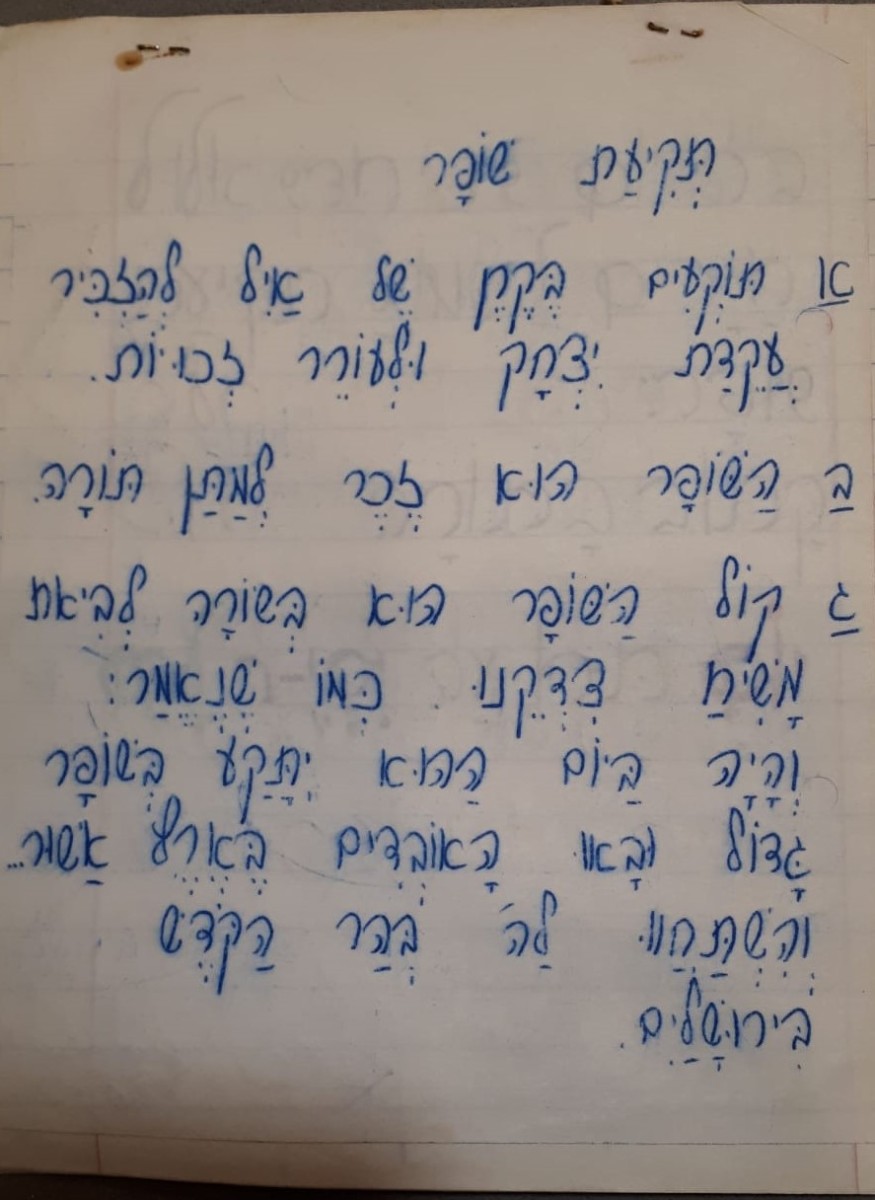 תְּקִיעַת שׁוֹפָר
א תּוֹקְעִים בְּקֶרֶן שֶׁל אַיִל לְהַזְכִּיר
עֲקֵדַת יִצְחָק וּלְעוֹרֵר זְכוּיּוֹת.
ב הַשּׁוֹפָר הוּא זֵכֶר לְמַתַּן תּוֹרָה.
ג קוֹל הַשּׁוֹפָר הוּא בְּשׂוֹרָה לְבִיאַת
מָשִׁיחַ צִדְקֵנוּ כְּמוֹ שֶׁנֶּאֱמַר:
וְהָיָה בַּיּוֹם הַהוּא יִתָּקַע בְּשׁוֹפָר
גָּדוֹל וּבָאוּ הָאוֹבְדִים בְּאֶרֶץ אַשּׁוּר...
וְהִשְׁתַּחֲווּ לַה' בְּהַר הַקֹּדֶשׁ
בִּירוּשָׁלַיִם.